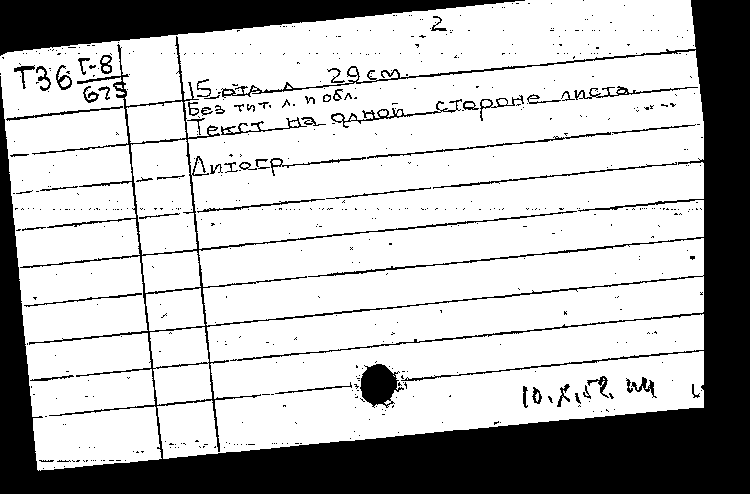 2
Т36 Г-8
625
15 отд. л. 29 см.
Без тит. л. и обл.
Текст на одной стороне листа.
Литогр.
10.X.52.